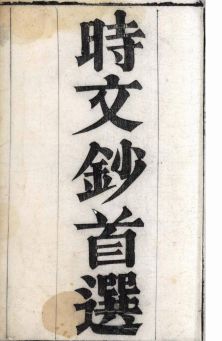 時文鈔首選